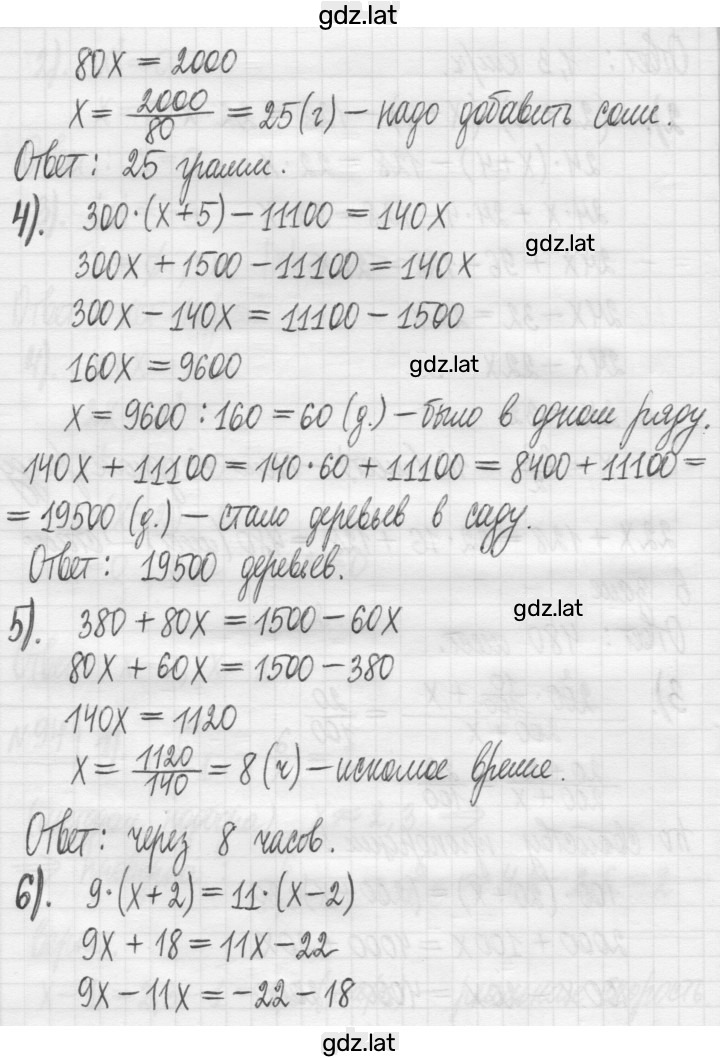 gdz.lat
80x = 2000
x = 2000/80 = 25 (г) – надо добавить соли.
Ответ: 25 грамм.
4). 300·(x+5) – 11100 = 140x
gdz.lat
300x + 1500 – 11100 = 140x
300x – 140x = 11100 – 1500
160x = 9600
gdz.lat
x = 9600 : 160 = 60 (д.) – было в одном ряду.
140x + 11100 = 140·60 + 11100 = 8400 + 11100 =
= 19500 (д.) – стало деревьев в саду.
Ответ: 19500 деревьев.
gdz.lat
5). 380 + 80x = 1500 – 60x
80x + 60x = 1500 – 380
140x = 1120
x = 1120/140 = 8 (ч) – искомое время.
Ответ: через 8 часов.
6). 9·(x+2) = 11·(x–2)
9x + 18 = 11x – 22
9x – 11x = –22 – 18
gdz.lat